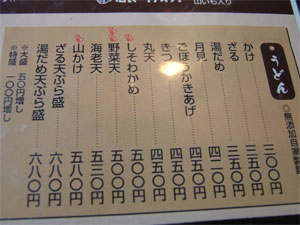 山いも入り
うどん
◎無添加自家製麺
かけ 三〇〇円
ざる 三五〇円
湯だめ 三五〇円
月見 四二〇円
ごぼうかきあげ 四五〇円
きつね 四五〇円
丸天 四五〇円
しそわかめ 五〇〇円
野菜天 五〇〇円
海老天 五三〇円
山かけ 五八〇円
ざる天ぷら盛 六八〇円
湯だめ天ぷら盛 六八〇円
※大盛 五〇円増し
※特盛 一〇〇円増し